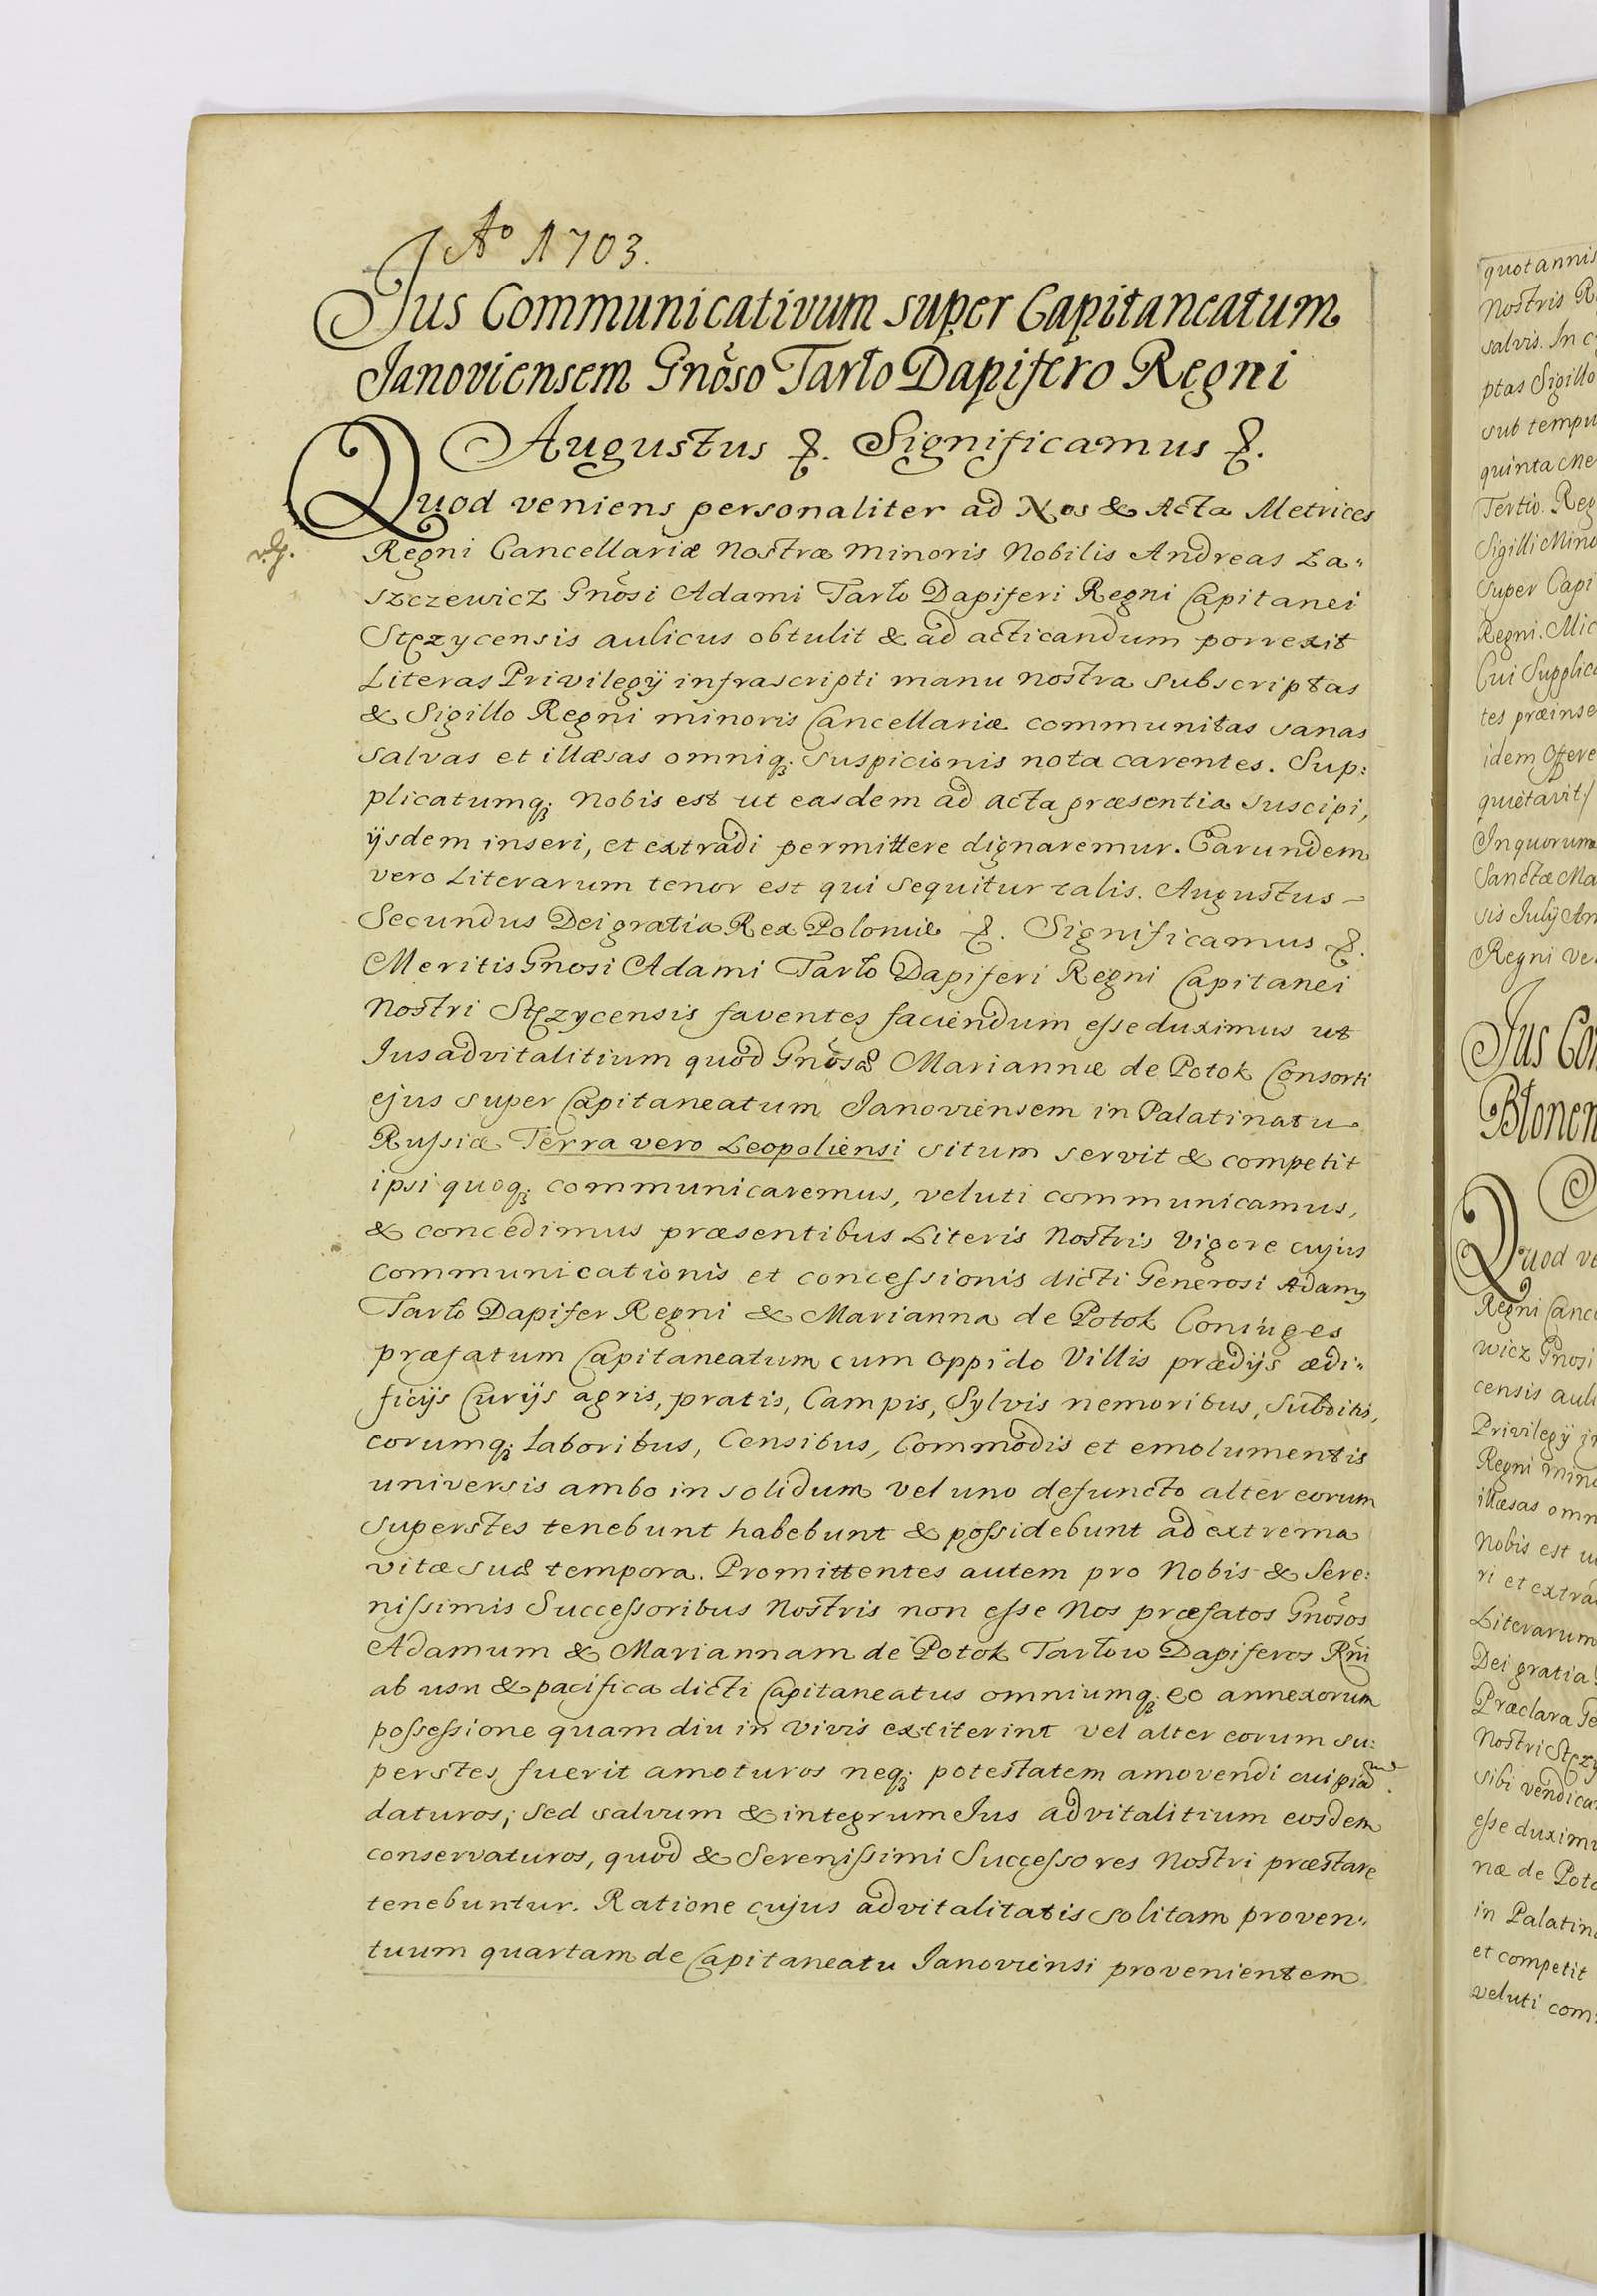 Aº 1703.
Jus Communicativum super Capitaneatum
Janoviensem Gnõso Tarło Dapifero Regni
Augustus &. Significamus &.
Quod veniens personaliter ad Nos & Acta Metrices
Regni Cancellariæ Nostræ Minoris Nobilis Andreas Ła„
szczewicz Gnõsi Adami Tarło Dapiferi Regni Capitanei
Stęzycensis aulicus obtulit & ad acticandum porrexit
Literas Privilegÿ infrascripti manu nostra subscriptas
& Sigillo Regni minoris Cancellariæ communitas sanas
salvas et illæsas omniq; suspicionis nota carentes. Sup:
plicatumq; Nobis est ut easdem ad acta præsentia suscipi,
ÿsdem inseri, et extradi permittere dignaremur. Earundem
vero Literarum tenor est qui sequitur talis. Augustus –
Secundus Dei gratia Rex Poloniæ &. Significamus &.
Meritis Gnosi Adami Tarło Dapiferi Regni Capitanei
Nostri Stęzycensis faventes faciendum esse duximus ut
Jus advitalitium quod Gnõsæ Mariannæ de Potok Consorti
ejus super Capitaneatum Janoviensem in Palatinatu
Russiæ Terra vero Leopoliensi situm servit & competit
ipsi quoq; communicaremus, veluti communicamus,
& concedimus præsentibus Literis Nostris Vigore cujus
communicationis et concessionis dicti Generosi Adamy
Tarło Dapifer Regni & Marianna de Potok Coniuges
præfatum Capitaneatum cum Oppido Villis prædÿs ædi„
ficÿs Curÿs agris, pratis, Campis, Sylvis nemoribus, Subditis,
eorumq; Laboribus, Censibus, Commodis et emolumentis
universis ambo in solidum vel uno defuncto alter eorum
superstes tenebunt habebunt & possidebunt ad extrema
vitæ suæ tempora. Promittentes autem pro Nobis & Sere:
nissimis Successoribus Nostris non esse Nos præfatos Gnõsos
Adamum & Mariannam de Potok Tarłow Dapiferos Rñi
ab usu & pacifica dicti Capitaneatus omniumq; eo annexorum
possessione quam diu in vivis extiterint vel alter eorum su:
perstes fuerit amoturos neq; potestatem amovendi cuipiam
daturos; sed salvum & integrum Jus advitalitium eosdem
conservaturos, quod & Serenissimi Successores Nostri præstare
tenebuntur. Ratione cujus advitalitatis solitam proven„
tuum quartam de Capitaneatu Janoviensi provenientem
quotannis
Nostris R
salvis. In c
ptas Sigillo
sub tempu
quinta Me
Tertio. Reg
Sigilli Mino
super Capi
Regni. Mic
Cui Supplica
tes præinse
idem Offere
quietavit/
In quorum
Sanctæ Ma
sis Julÿ An
Regni ve
Jus Co
Błonen
Quod ve
Regni Canc
wicz Gnosi
censis auli
Privilegÿ in
Regni mino
illæsas omn
Nobis est u
ri et extra
Literarum
Dei gratia
Præclara Ge
Nostri Stęzy
sibi vendica
esse duximu
næ de Poto
in Palatin
et competit
veluti com